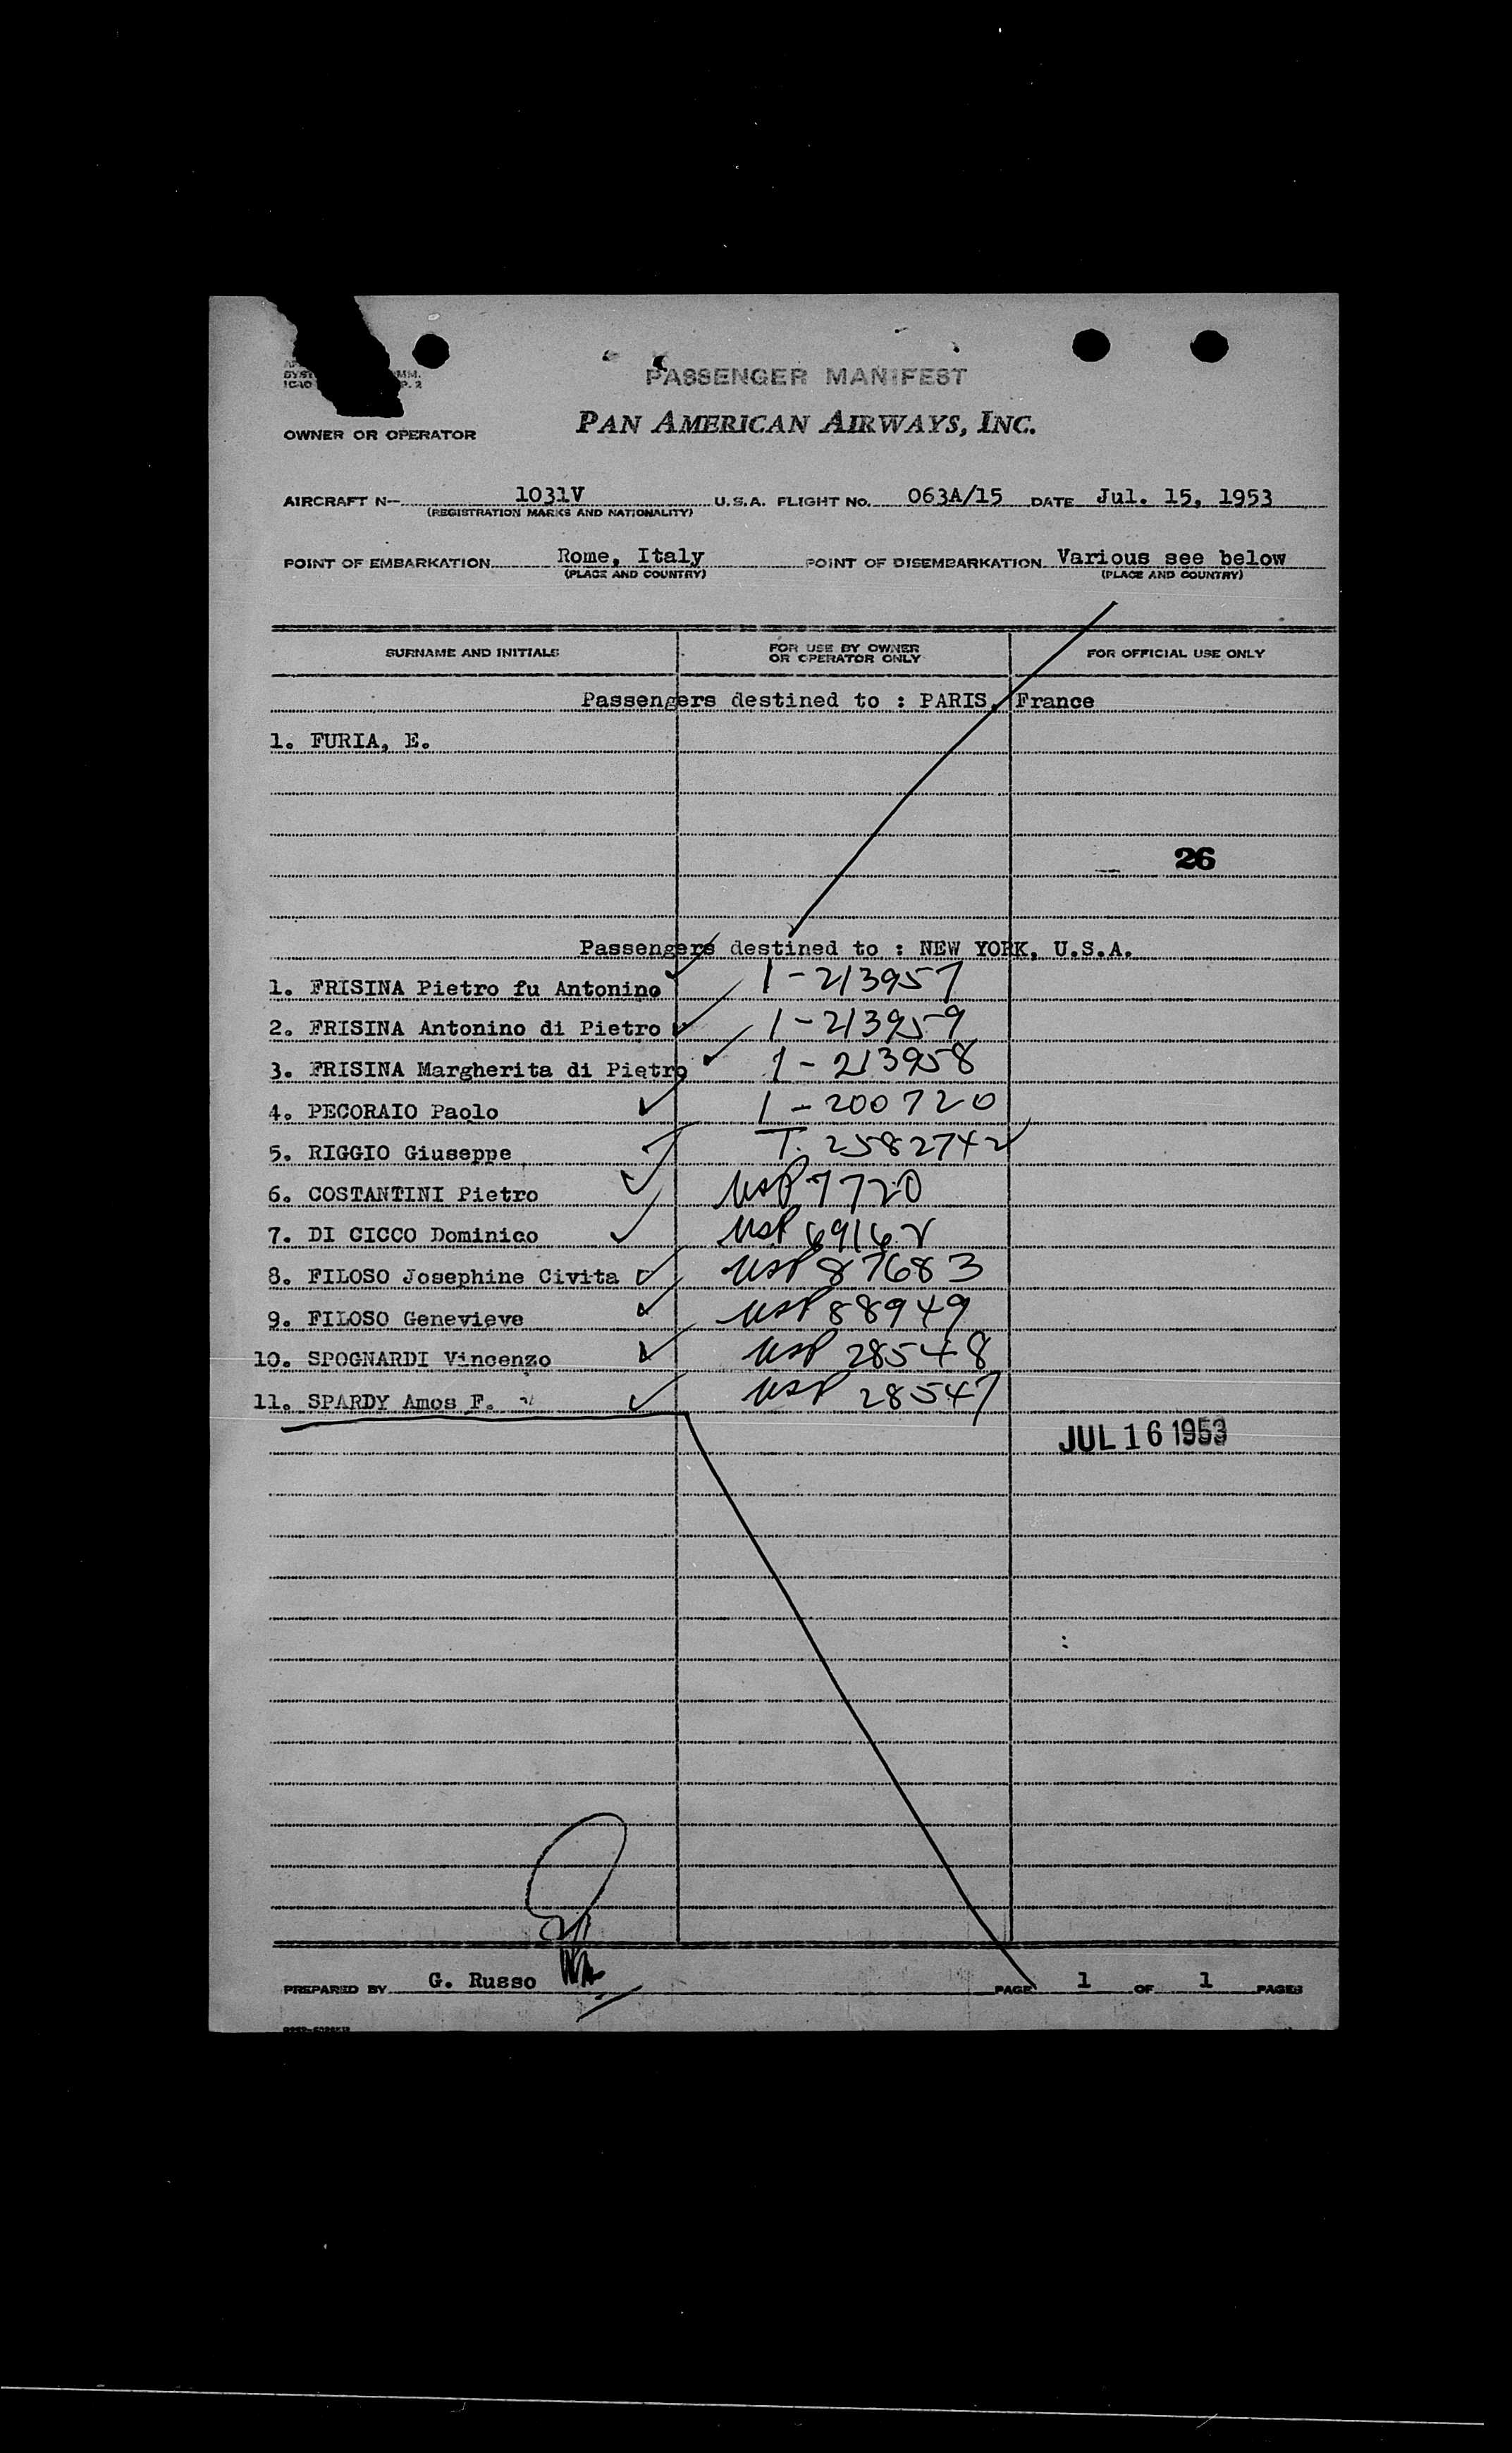 MM.
P. 2
PASSENGER MANIFEST
OWNER OR OPERATOR PAN AMERICAN AIRWAYS, INC.
AIRCRAFT N-- 1031V U.S.A. FLIGHT NO. 063A/15 DATE Jul. 15, 1953
(REGISTRATION MARKS AND NATIONALITY)
POINT OF EMBARKATION Rome, Italy POINT OF DISEMBARKATION Various see below
(PLACE AND COUNTRY) (PLACE AND COUNTRY)
SURNAME AND INITIALS FOR USE BY OWNER OR OPERATOR ONLY FOR OFFICIAL USE ONLY
Passengers destined to : PARIS, France
1. FURIA, E.
26
Passengers destined to : NEW YORK, U.S.A.
1. FRISINA Pietro fu Antonino 1-213957
2. FRISINA Antonino di Pietro 1-213959
3. FRISINA Margherita di Pietro 1-213958
4. PECORAIO Paolo 1-200720
5. RIGGIO Giuseppe T. 2582742
6. COSTANTINI Pietro USP 7720
7. DI CICCO Dominico USP 69162
8. FILOSO Josephine Civita USP 87683
9. FILOSO Genevieve USP 88949
10. SPOGNARDI Vincenzo USP 28548
11. SPARDY Amos F. USP 28547
JUL 16 1953
PREPARED BY G. Russo PAGE 1 OF 1 PAGES